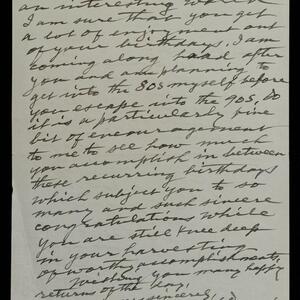 an interesting world
I am sure that you get
a lot of enjoyment out
of your birthdays. I am
coming along hard after
you and am planning to
get into the 80s myself before
you escape into the 90s. So
it is a particularly fine
bit of encouragement
to me to see how much
you accomplish in between
these recurring birthdays
which subject you to so
many and such sincere
congratulations while
you are still knee deep
in your harvesting
of worthy accomplishments.
Wishing you many happy
returns of the day,
sincerely